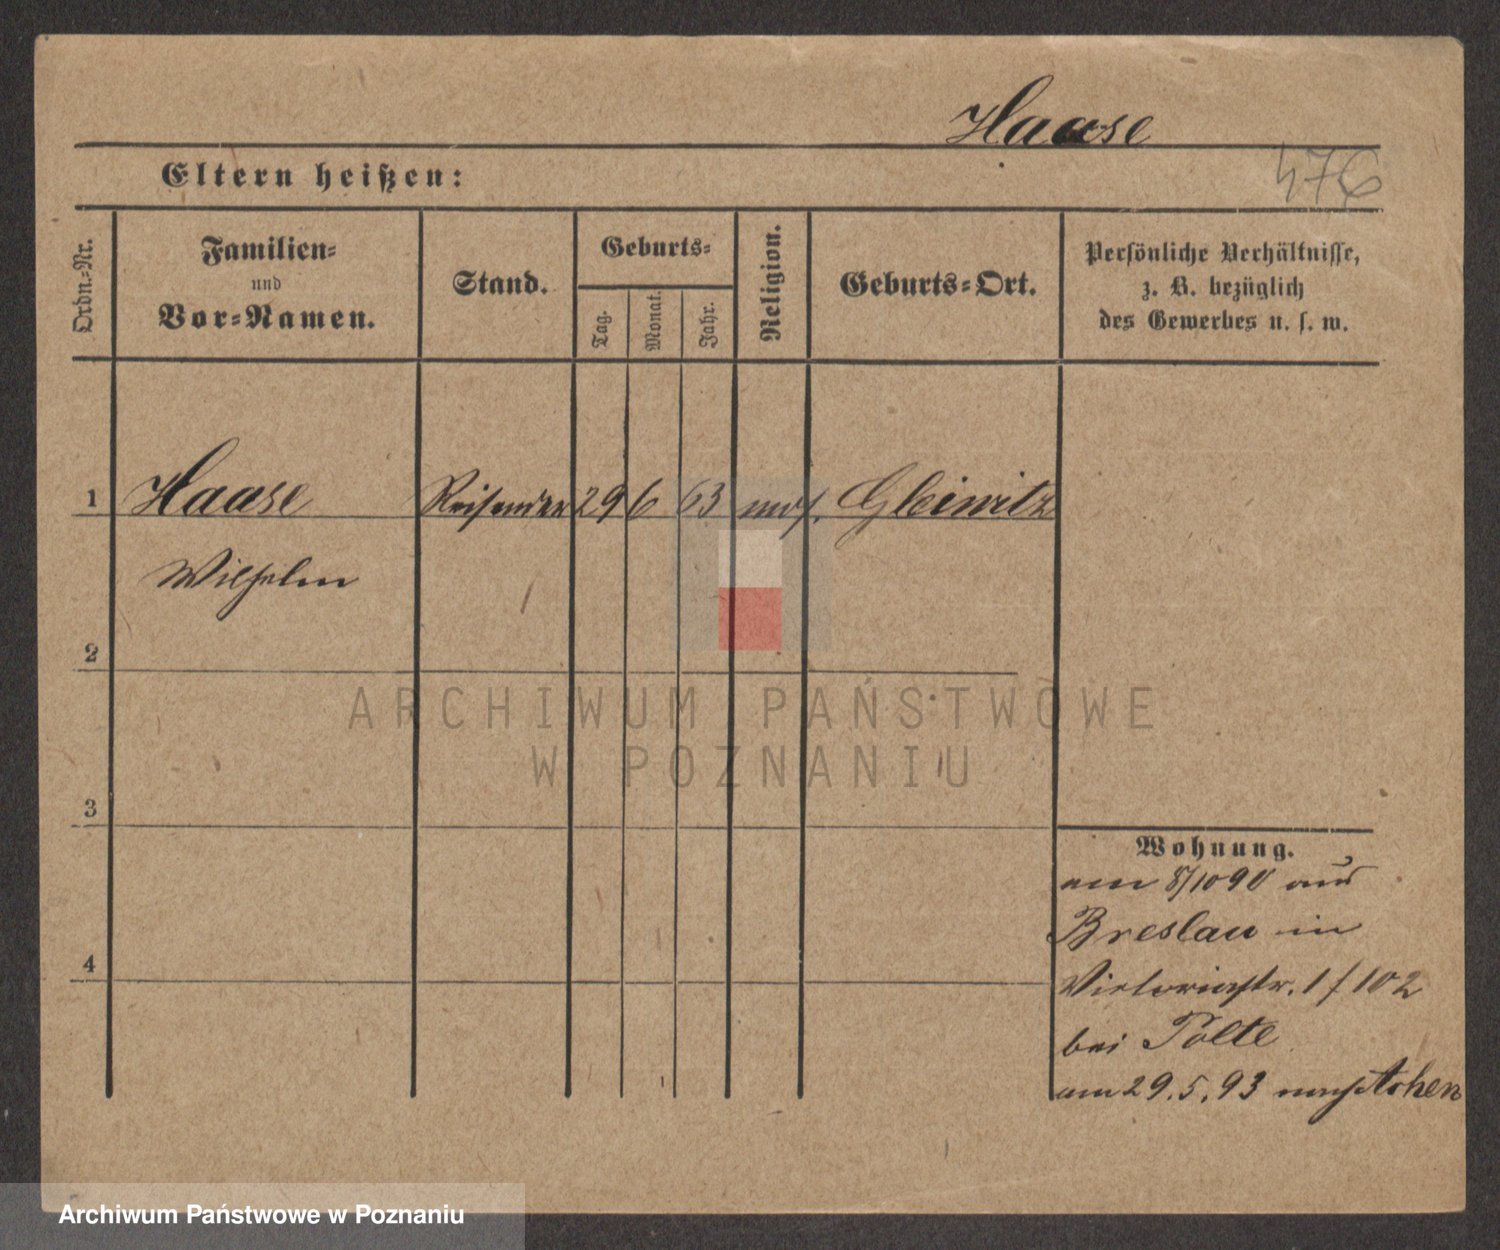 Haase
476
Eltern heißen:
Ordn.-Nr.
Familien-
und
Vor-Namen.
Stand.
Geburts-
Tag.
Monat.
Jahr.
Religion.
Geburts-Ort.
Persönliche Verhältnisse,
z. B. bezüglich
des Gewerbes u. s. w.
1 Haase Reisender 29 6 63 mos. Gleiwitz
Wilhelm
2
3
4
Wohnung.
am 8/10 90 aus
Breslau in
Victoriastr. 1 / 102
bei Polte
am 29.5.93 nach
ARCHIWUM PAŃSTWOWE
W POZNANIU
Archiwum Państwowe w Poznaniu